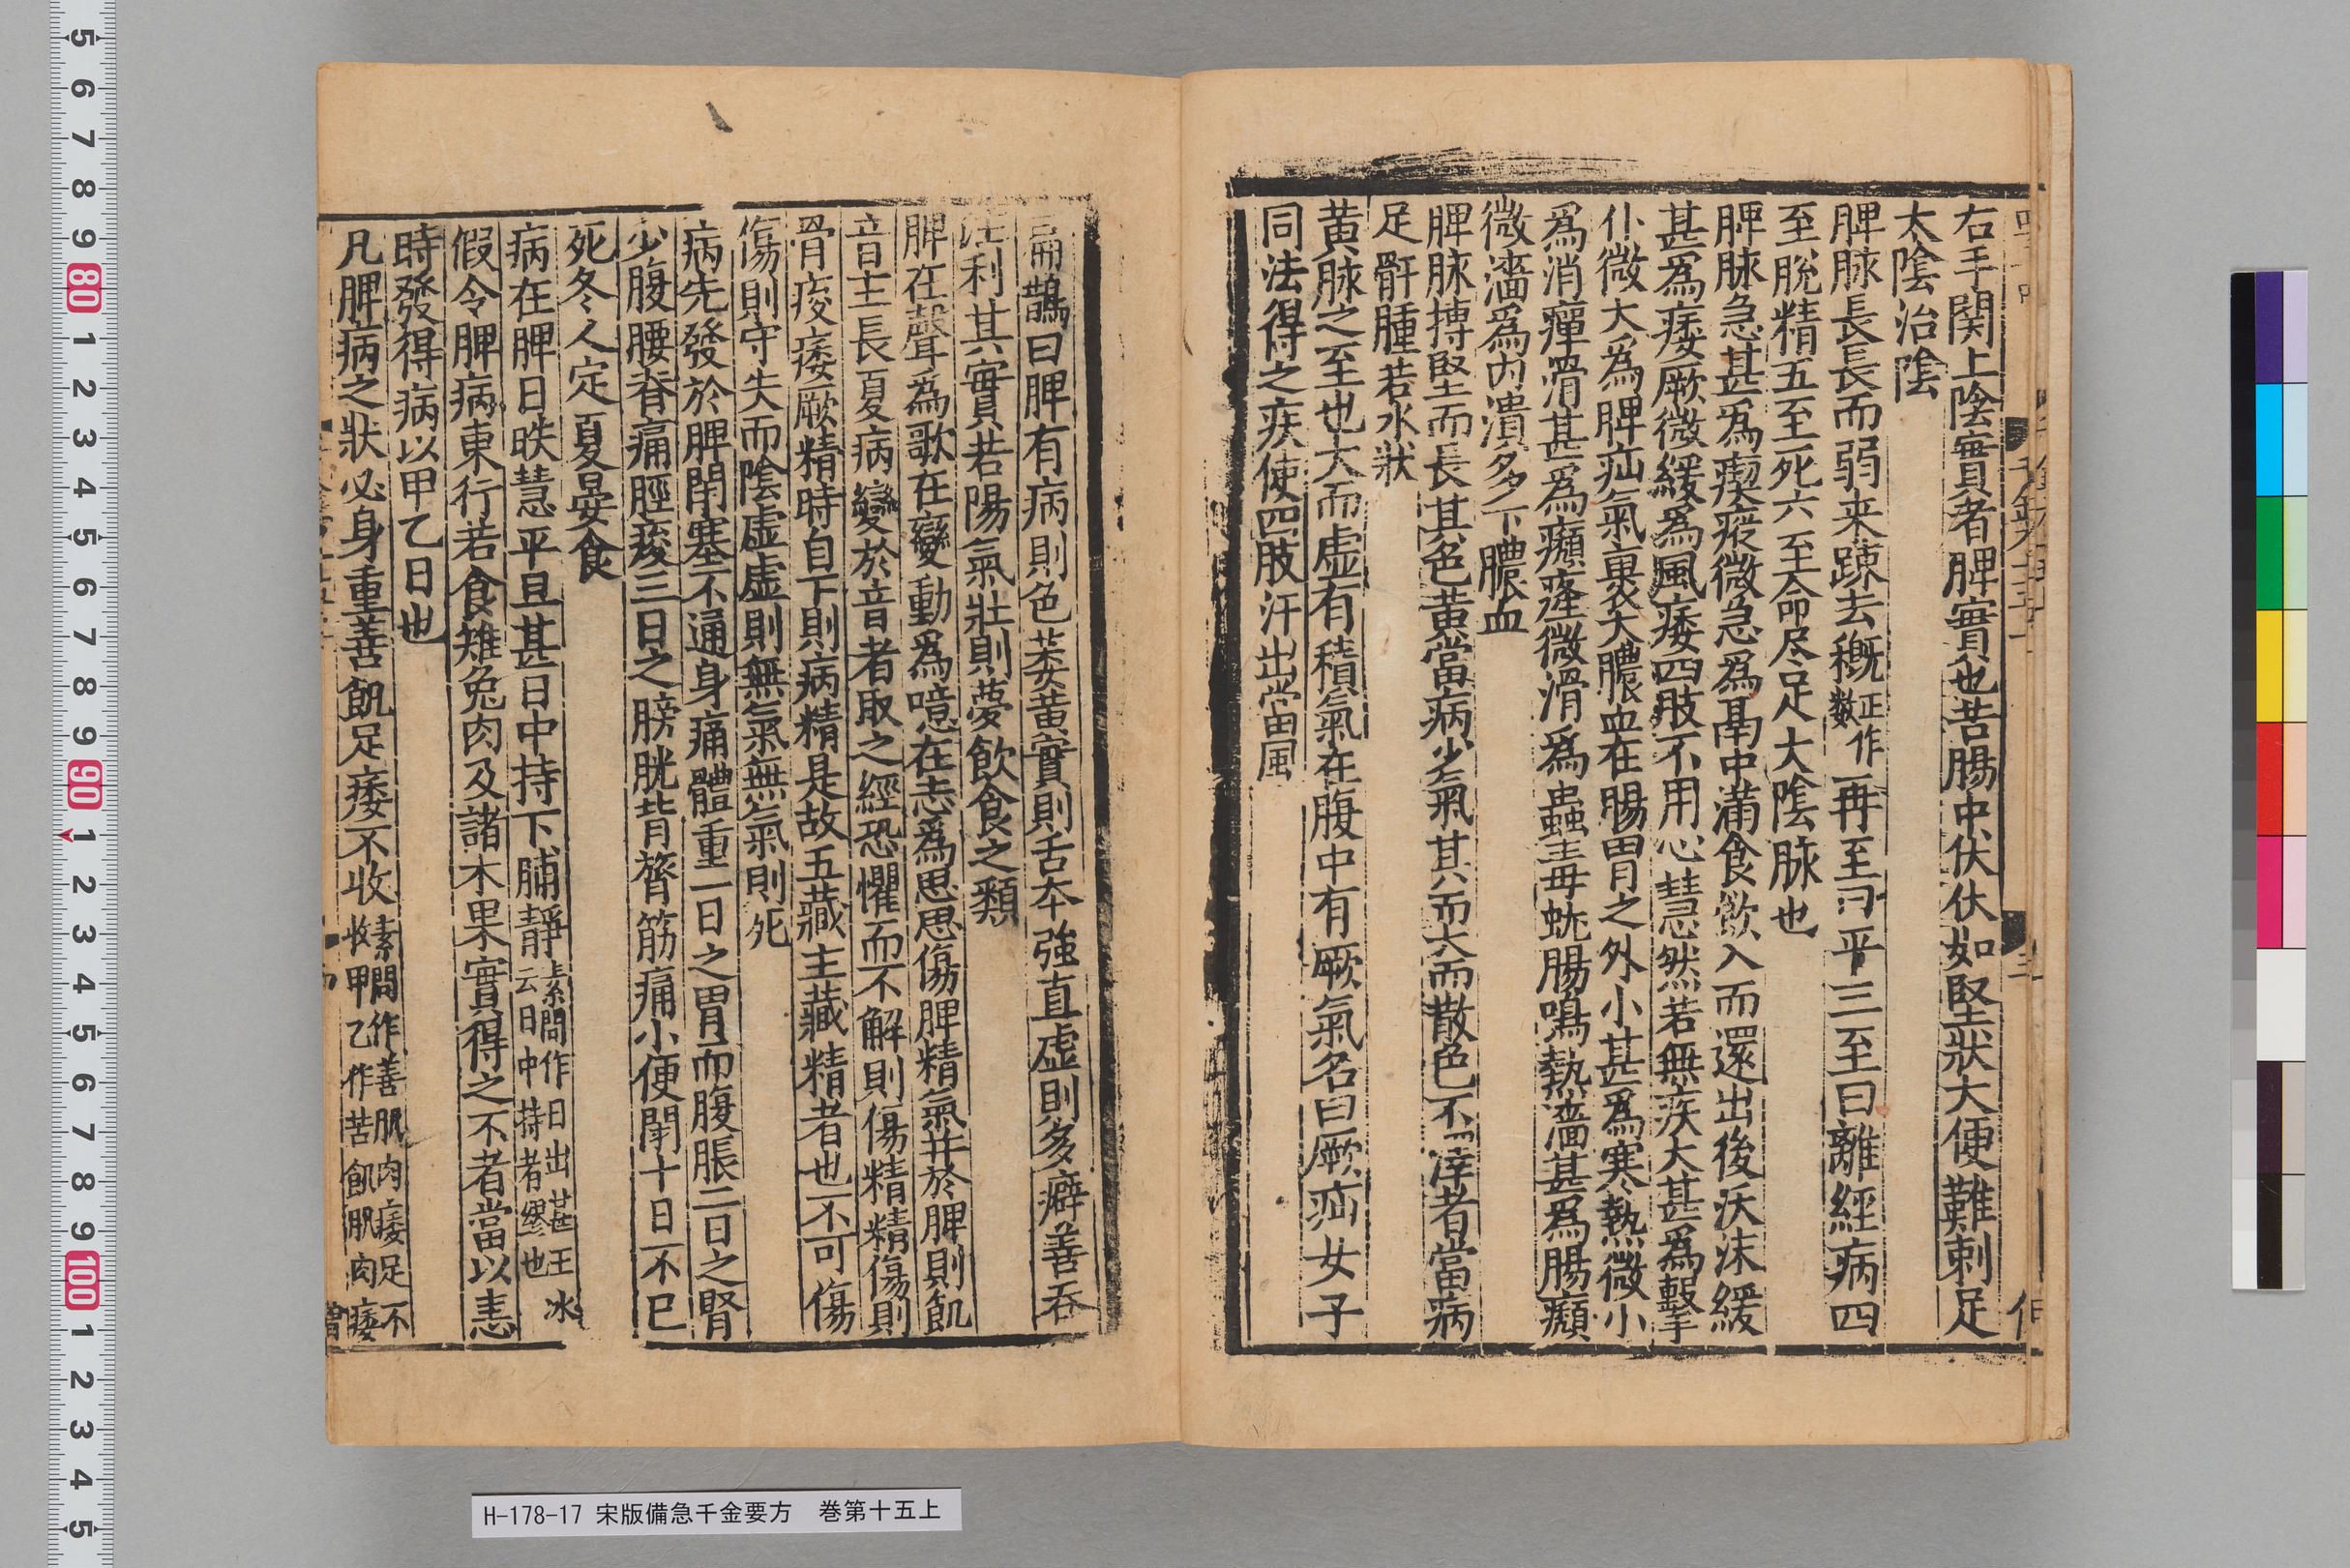 右手関上陰實者脾實也苦腸中伏伏如堅狀大便難刺足
太陰治陰
脾脉長長而弱来踈去穊正作數再至曰平三至曰離經病四
至脫精五至死六至命尽足太陰脉也
脾脉急甚爲瘈瘲微急爲鬲中滿食飲入而還出後沃沫緩
甚爲痿厥微緩爲風痿四肢不用心慧然若無疾大甚爲擊
仆微大爲脾疝氣裹大膿血在腸胃之外小甚爲寒熱微小
爲消癉滑甚爲癲癃微滑爲蟲毒蚘腸鳴熱濇甚爲腸癲
微濇爲內潰多下膿血
脾脉搏堅而長其色黃當病少氣其耎而散色不澤者當病
足䯒腫若水狀
黃脉之至也大而虛有積氣在腹中有厥氣名曰厥疝女子
同法得之疾使四肢汗出當風
扁鵲曰脾有病則色萎黃實則舌本強直虛則多癖善吞
注利其實若陽氣壯則夢飲食之類
脾在聲爲歌在變動爲噫在志爲思思傷脾精氣并於脾則飢
音主長夏病變於音者取之經恐懼而不解則傷精精傷則
骨痠痿厥精時自下則病精是故五藏主藏精者也不可傷
傷則守失而陰虛虛則無氣無氣則死
病先發於脾閉塞不通身痛體重一日之胃而腹脹二日之腎
少腹腰脊痛脛痠三日之膀胱背膂筋痛小便閉十日不已
死冬人定夏晏食
病在脾日昳慧平旦甚日中持下晡靜素問作日出甚王冰云日中持者繆也
假令脾病東行若食雉兔肉及諸木果實得之不者當以恚
時發得病以甲乙日也
凡脾病之狀必身重善飢足痿不收素問作善肌肉痿足不收甲乙作苦飢肌肉痿
H-178-17 宋版備急千金要方 巻第十五上